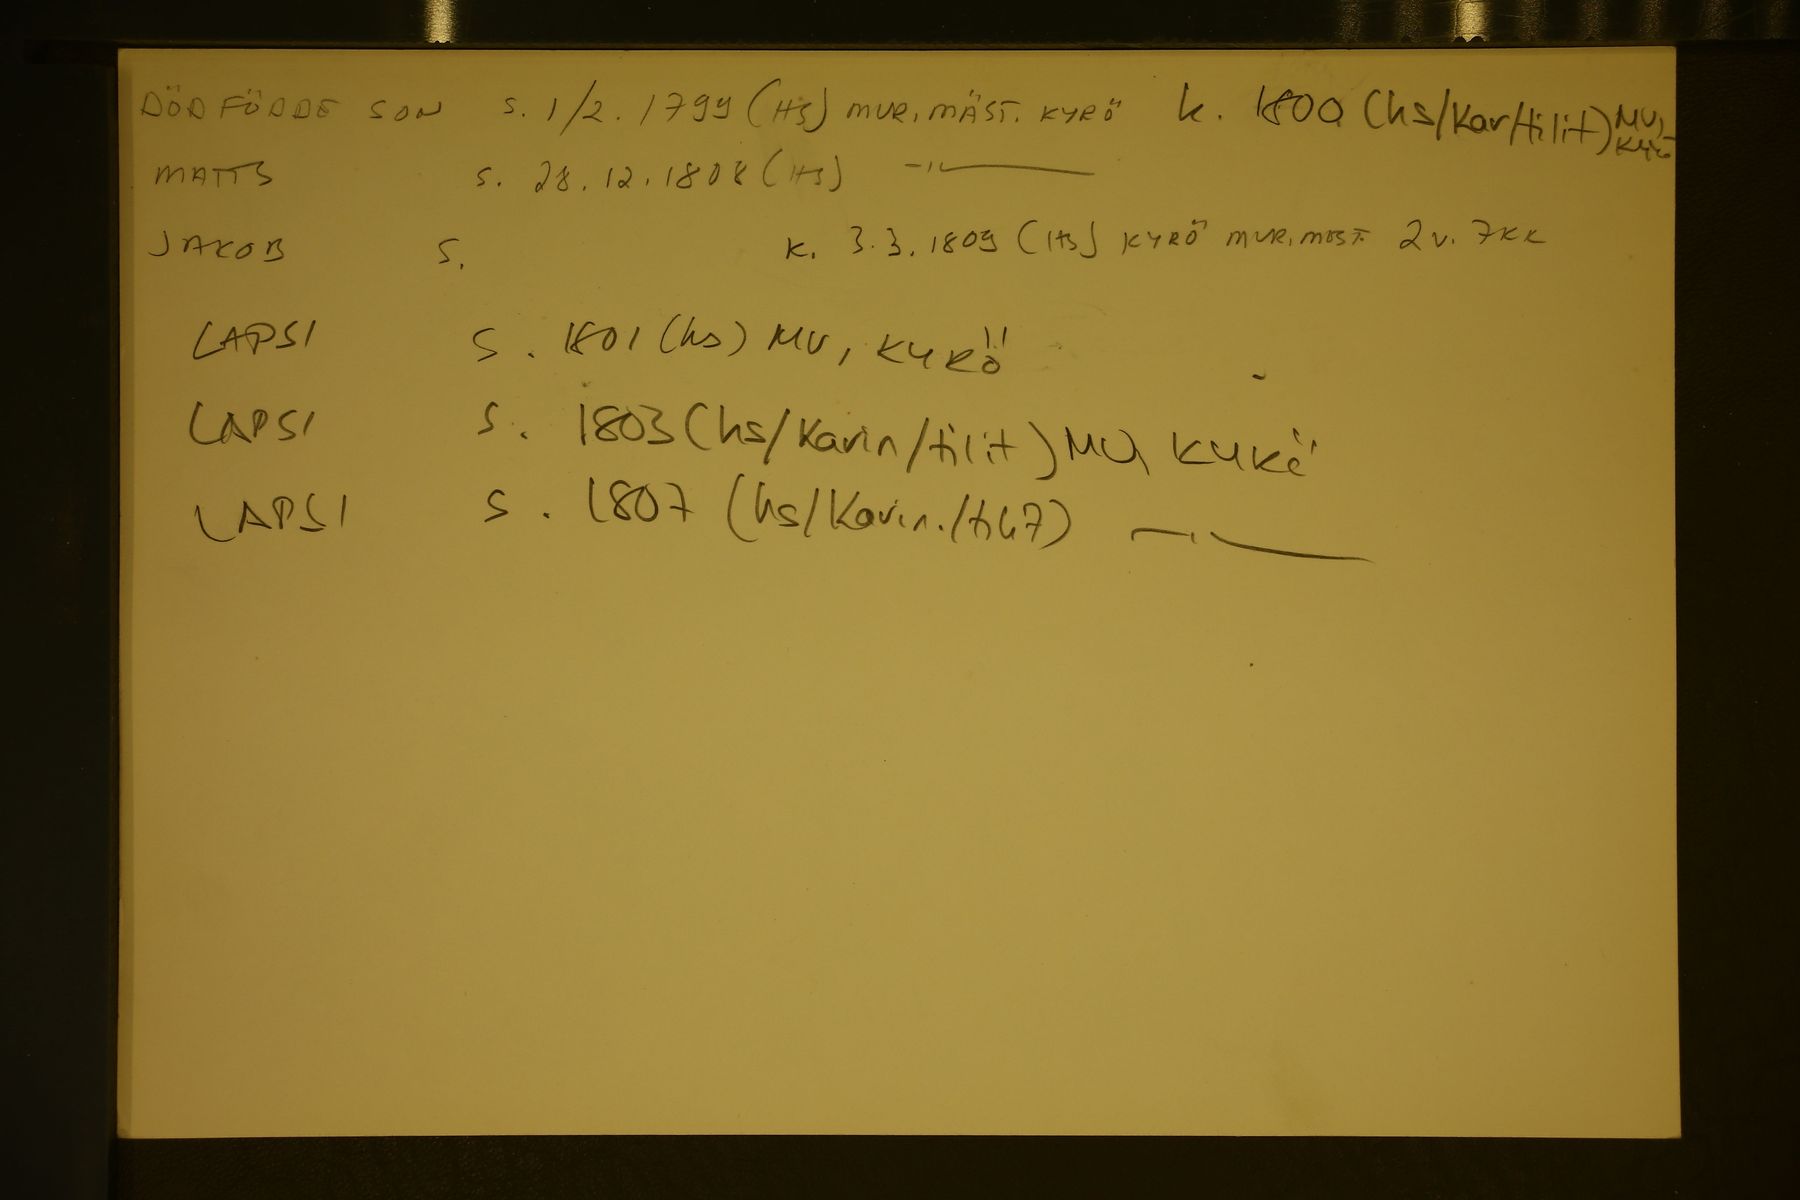 DÖDFÖDDE SON s. 1/2. 1799 (HS) MUR.MÄST. KYRÖ k. 1800 (hs/kar/tilit) MU, KYRÖ
MATTS s. 28.12.1808 (HS) —"—
JAKOB S. K. 3.3.1809 (HS) KYRÖ MUR.MÄST. 2 v. 7 KK
LAPSI S. 1801 (hs) MU, KYRÖ
LAPSI S. 1803 (hs/Karin/tilit) MU, KYRÖ
LAPSI S. 1807 (hs/Karin./tilit) —"—